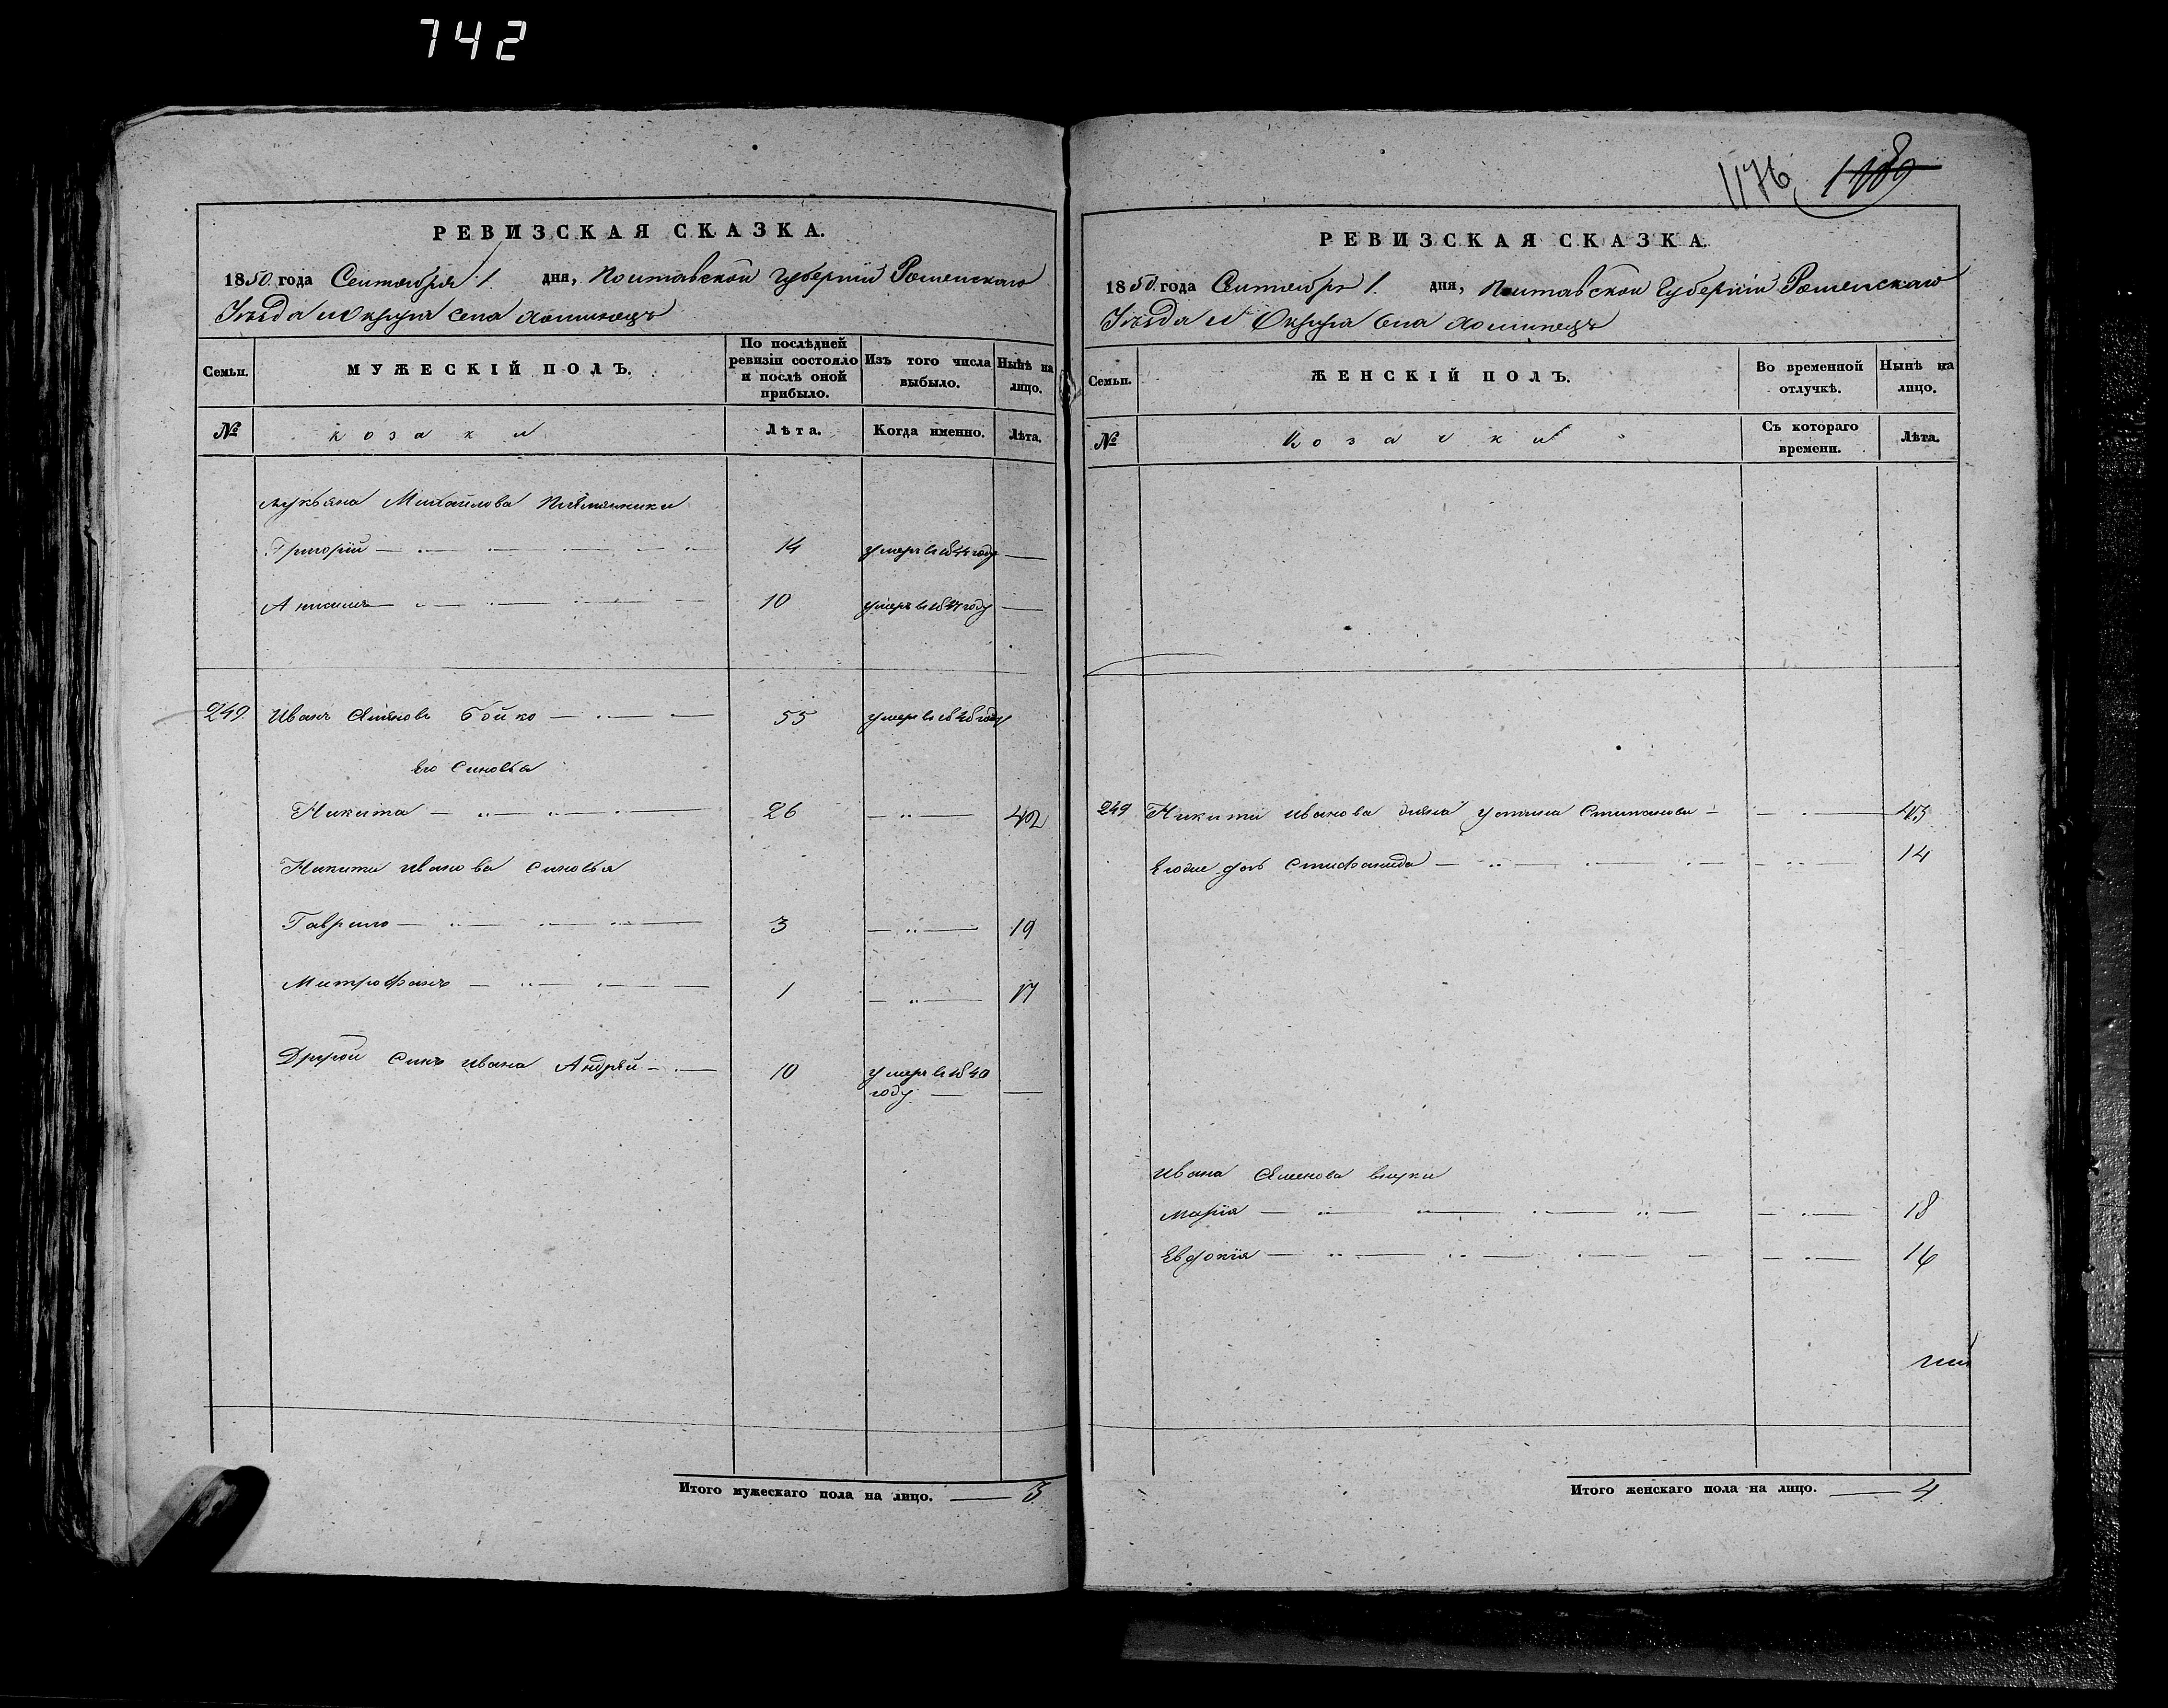 742
РЕВИЗСКАЯ СКАЗКА.
1850. года Сентября 1. дня, Полтавской Губерніи Роменскаго
Уѣзда и Округа села Хоминецъ
Семьи.
МУЖЕСКІЙ ПОЛЪ.
По послѣдней ревизіи состояло и послѣ оной прибыло.
Изъ того числа выбыло.
Нынѣ на лицо.
№
козаки
Лѣта.
Когда именно.
Лѣта.
Лукьяна Михайлова Племянники
Григорій 14 умеръ в 1844 году
Анисимъ 10 умеръ в 1847 году
249. Иванъ Бойко 55 умеръ в году
Его Синовья
Никита 26 42
Никити Иванова Синовья
Гаврило 3 19
Митрофанъ 1 17
Другой Синъ Ивана Андрей 10 умеръ в 1840
году
Итого мужескаго пола на лицо. 3
1176 1180
РЕВИЗСКАЯ СКАЗКА.
1850. года Сентября 1. дня, Полтавской Губерніи Роменскаго
Уѣзда и Округа Села Хоминецъ
Семьи.
ЖЕНСКІЙ ПОЛЪ.
Во временной отлучкѣ.
Нынѣ на лицо.
№
Козачки
Съ котораго времени.
Лѣта.
249 Никити Иванова жена Устина Степанова 43
Его же дочь Стефанида 14
Ивана внуки
Марія 18
Евдокія 16
Итого женскаго пола на лицо. 4.